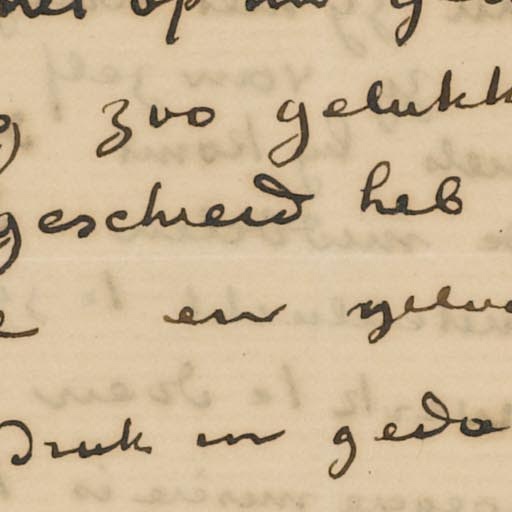 op
zoo gelukk
geschreid heb
en gelu
druk in geda